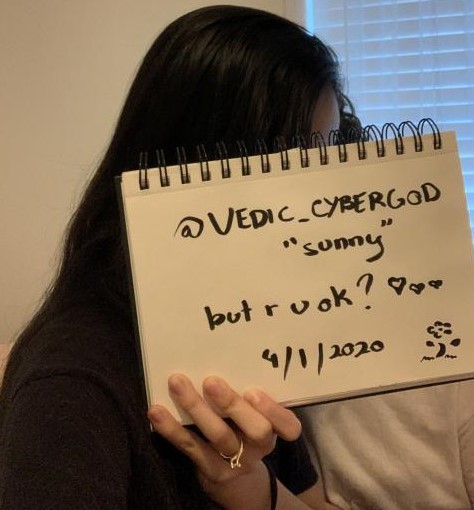 @VEDIC_CYBERGOD
"sunny"
but r u ok? ♡♡♡
4/1/2020